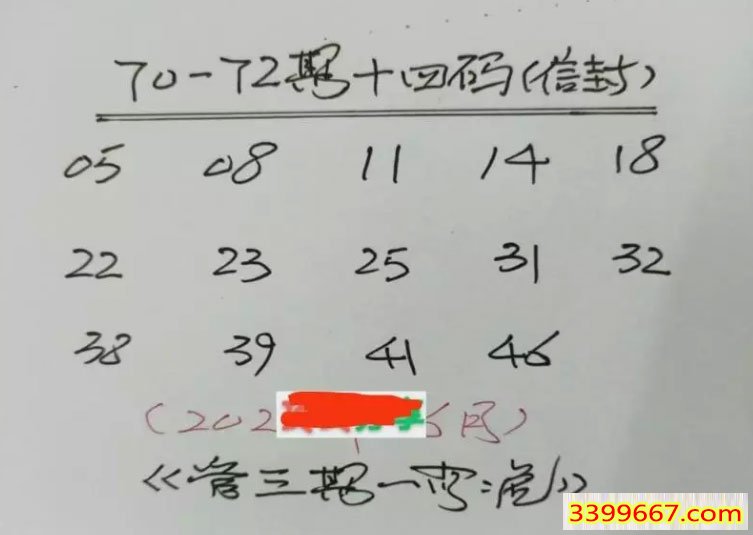 70-72期十四码(信封)
05 08 11 14 18
22 23 25 31 32
38 39 41 46
(202 6月)
《管三期一
3399667.com